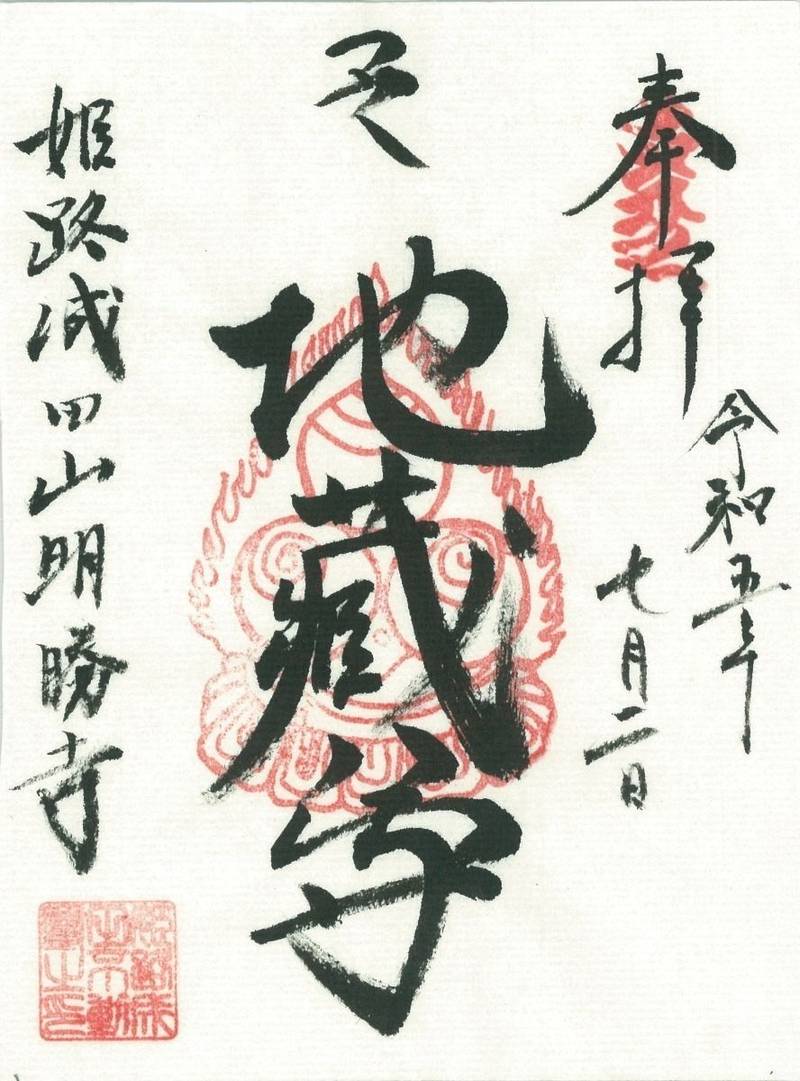 奉拝
令和五年
七月二日
地蔵尊
姫路成田山明勝寺